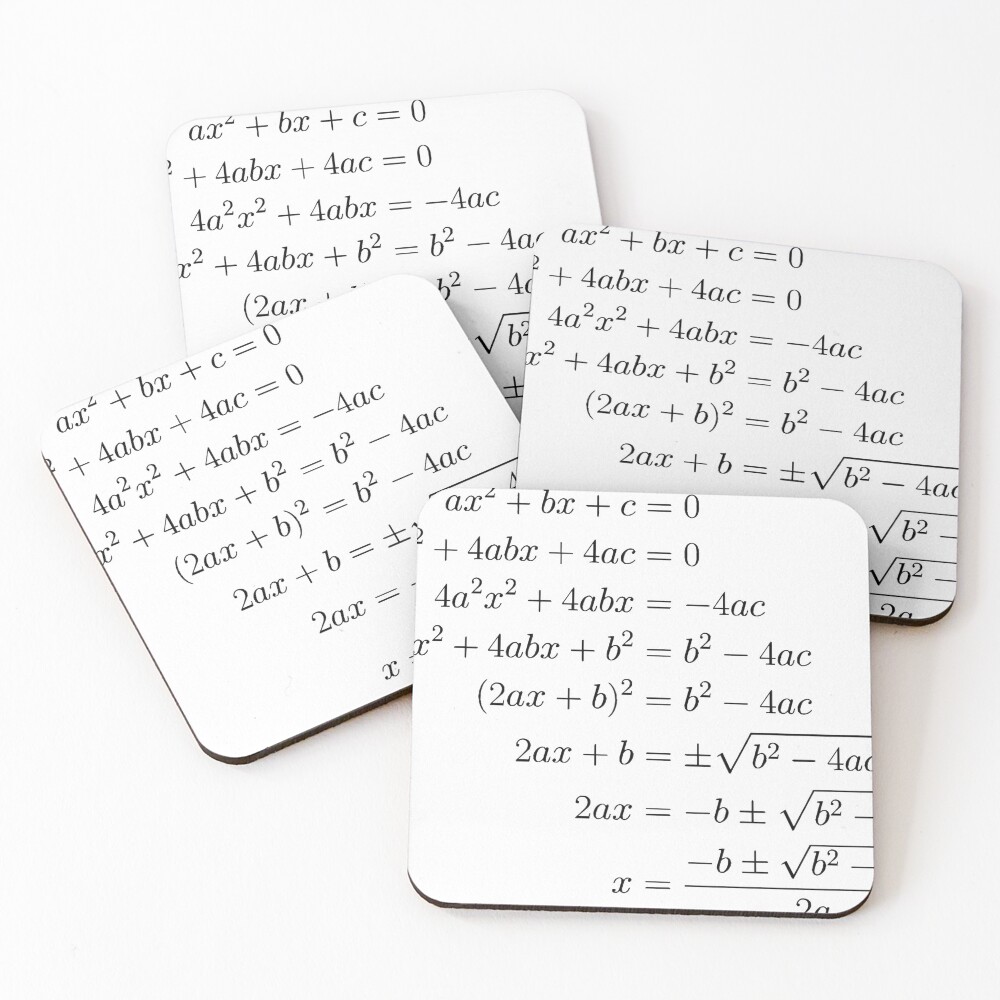 ax² + bx + c = 0
² + 4abx + 4ac = 0
4a²x² + 4abx = −4ac
x² + 4abx + b² = b² − 4a
(2ax + b² − 4a
√b²
±
ax² + bx + c = 0
² + 4abx + 4ac = 0
4a²x² + 4abx = −4ac
x² + 4abx + b² = b² − 4ac
(2ax + b)² = b² − 4ac
2ax + b = ±√b² − 4ac
√b² −
√b² −
2a
ax² + bx + c = 0
² + 4abx + 4ac = 0
4a²x² + 4abx = −4ac
x² + 4abx + b² = b² − 4ac
(2ax + b)² = b² − 4ac
2ax + b = ±
2ax =
x
ax² + bx + c = 0
+ 4abx + 4ac = 0
4a²x² + 4abx = −4ac
x² + 4abx + b² = b² − 4ac
(2ax + b)² = b² − 4ac
2ax + b = ±√b² − 4ac
2ax = −b ± √b² −
−b ± √b² −
x =
2a